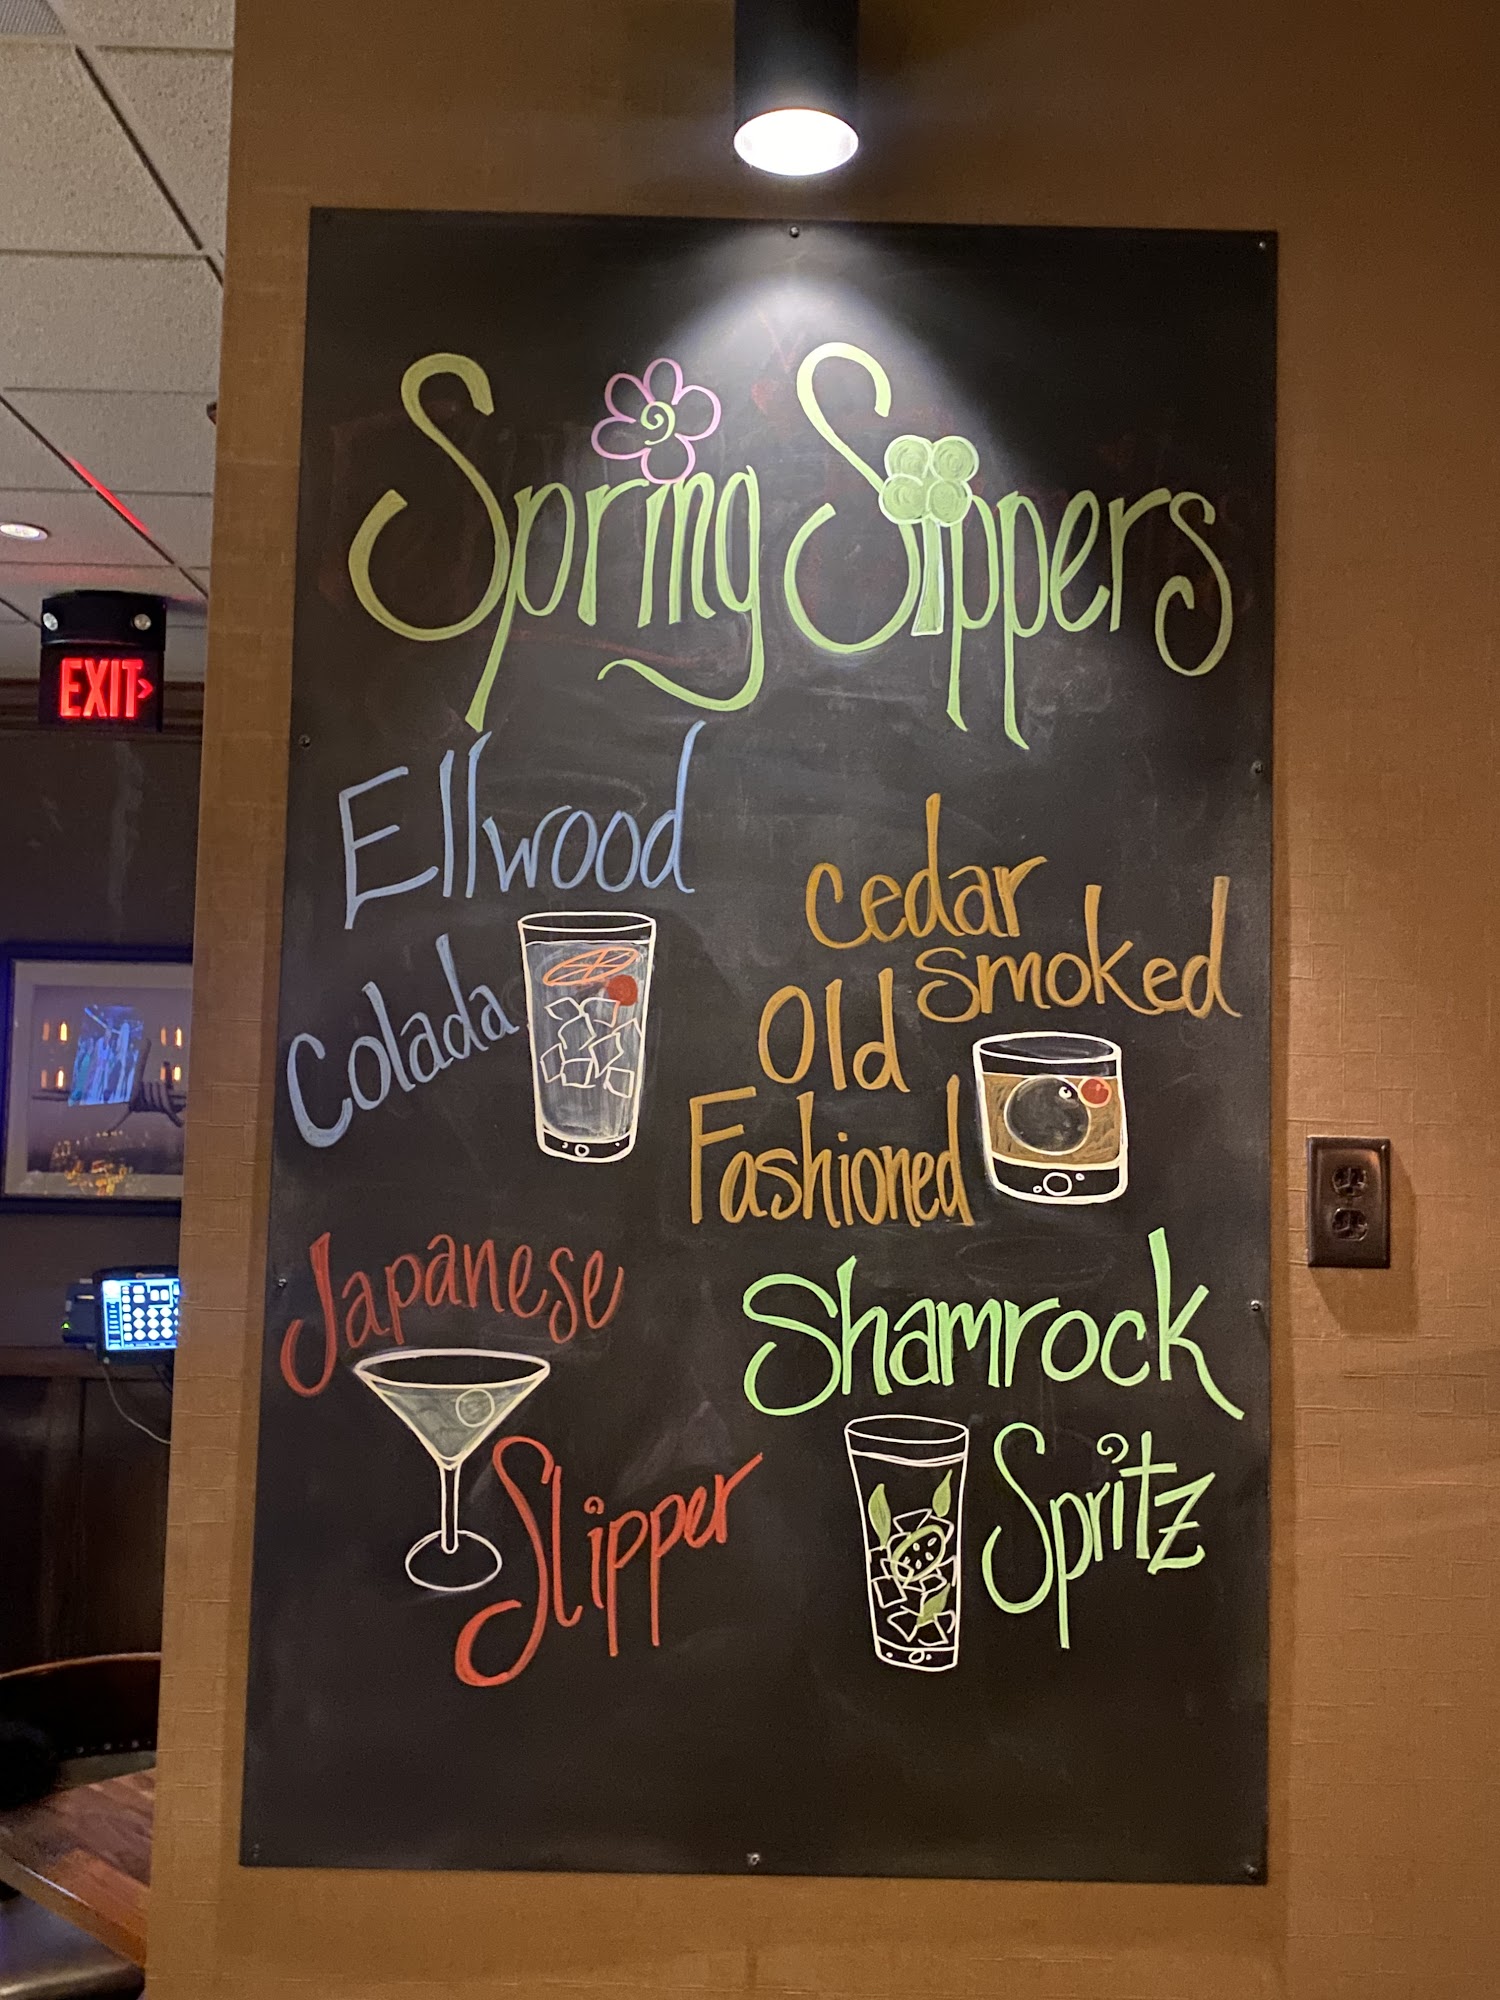 Spring Sippers
Ellwood
Colada
Cedar
Smoked
Old
Fashioned
Japanese
Slipper
Shamrock
Spritz
EXIT